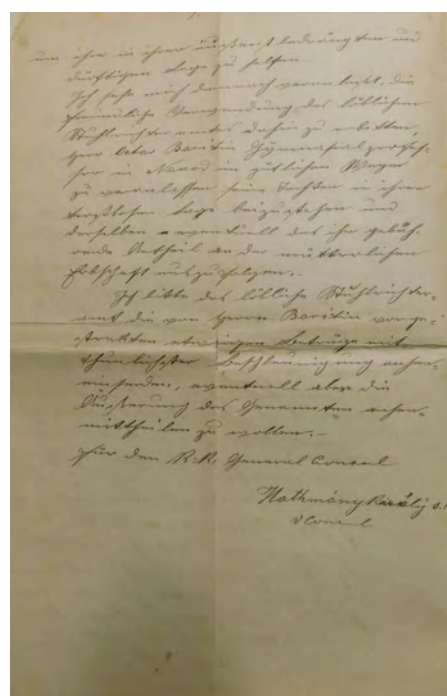 um ihr in ihrer äußerst bedrängten und
dürftigen Lage zu helfen.
Ich sehe mich demnach veranlaßt, die
freundliche Verwendung des löblichen
Stuhlrichteramtes dahin zu erbitten,
Herr Octav Baritiu Gymnasialprofes-
sor in Naszod im gütlichen Wege
zu veranlassen seine Tochter in ihrer
trostlosen Lage beizustehen und
derselben eventuell das ihr gebüh-
rende Antheil an der mütterlichen
Erbschaft auszufolgen.
Ich bitte das löbliche Stuhlrichter-
amt die von Herrn Baritiu vorge-
streckten etwaigen Beträge mit
thunlichster Beschleunigung anher
einsenden, eventuell aber die
Äußerung des Genannten anher
mittheilen zu wollen.–
Für den K.K. General Consul
Király
VConsul